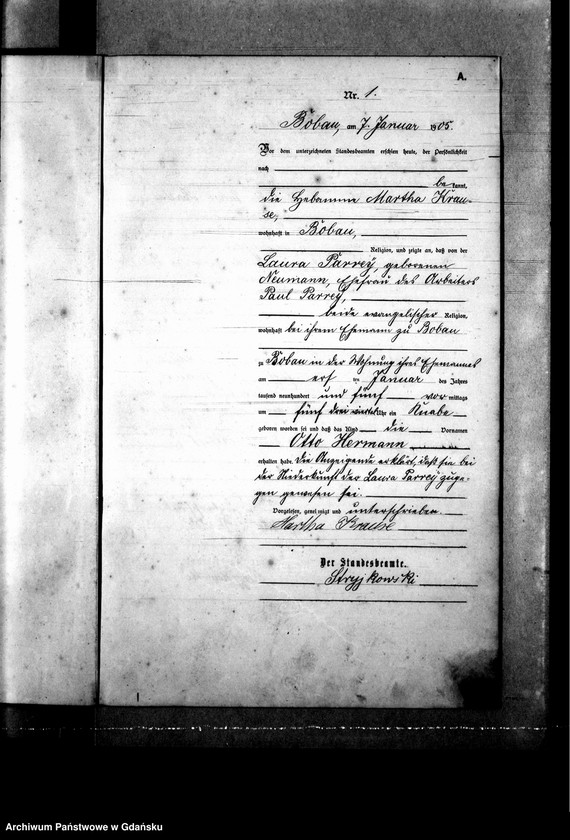 A.
Nr. 1.
Bobau, am 7. Januar 1905.
Vor dem unterzeichneten Standesbeamten erschien heute, der Persönlichkeit
nach
be kannt,
die Hebamme Martha Krau-
se,
wohnhaft in Bobau,
Religion, und zeigte an, daß von der
Laura Parrey, geborenen
Neumann, Ehefrau des Arbeiters
Paul Parrey,
beide evangelischer Religion,
wohnhaft bei ihrem Ehemann zu Bobau
zu Bobau in der Wohnung ihres Ehemannes
am ersten Januar des Jahres
tausend neunhundert und fünf vormittags
um fünf drei viertel Uhr ein Knabe
geboren worden sei und daß das Kind die Vornamen
Otto Hermann
erhalten habe. Die Anzeigende erklärt, daß sie bei
der Niederkunft der Laura Parrey zuge-
gen gewesen sei.
Vorgelesen, genehmigt und unterschrieben.
Martha Krause
Der Standesbeamte.
Stryjkowski
Archiwum Państwowe w Gdańsku